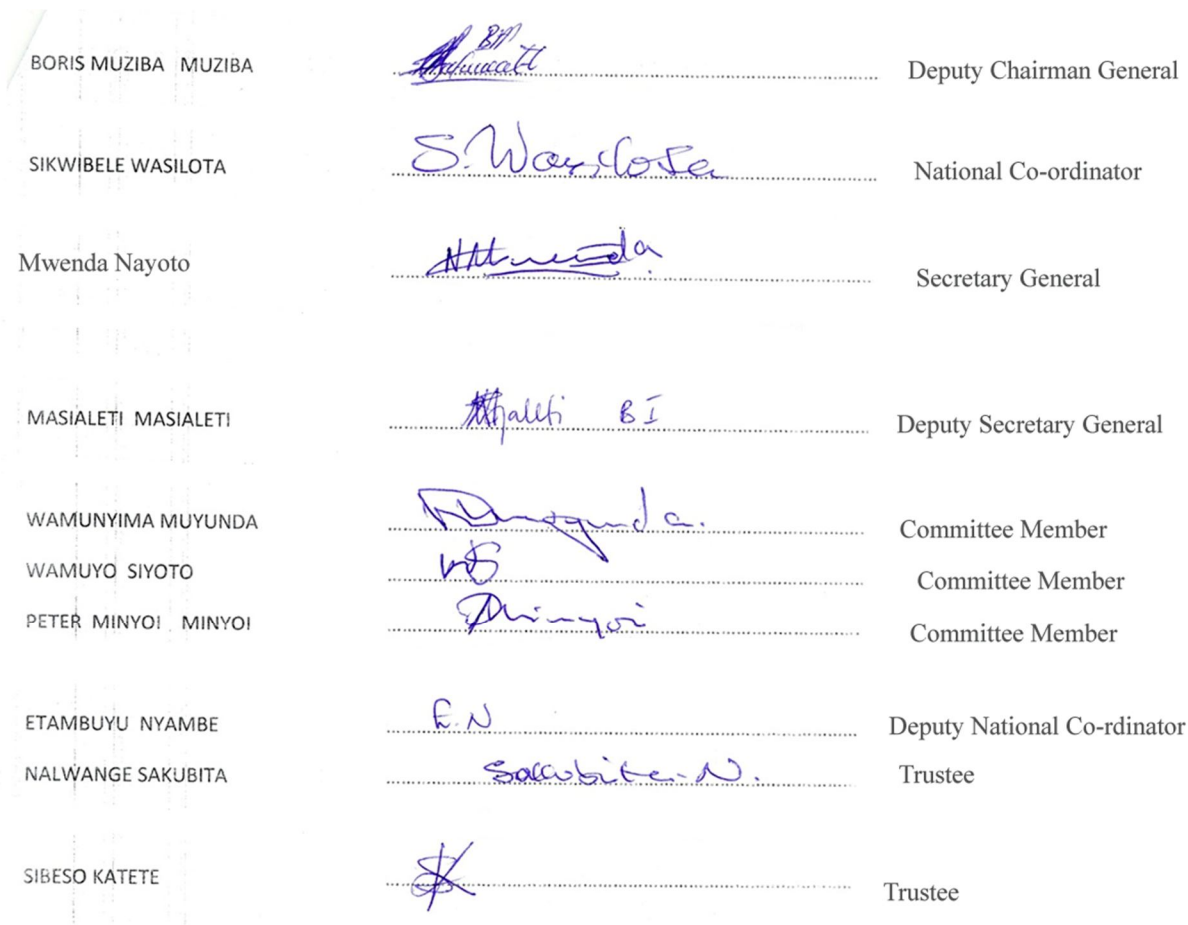 BORIS MUZIBA MUZIBA BM Deputy Chairman General
SIKWIBELE WASILOTA S. Wasilota National Co-ordinator
Mwenda Nayoto Secretary General
MASIALETI MASIALETI BI Deputy Secretary General
WAMUNYIMA MUYUNDA Committee Member
WAMUYO SIYOTO WS Committee Member
PETER MINYOI MINYOI Minyoi Committee Member
ETAMBUYU NYAMBE E.N Deputy National Co-rdinator
NALWANGE SAKUBITA Sakubita N. Trustee
SIBESO KATETE SK Trustee